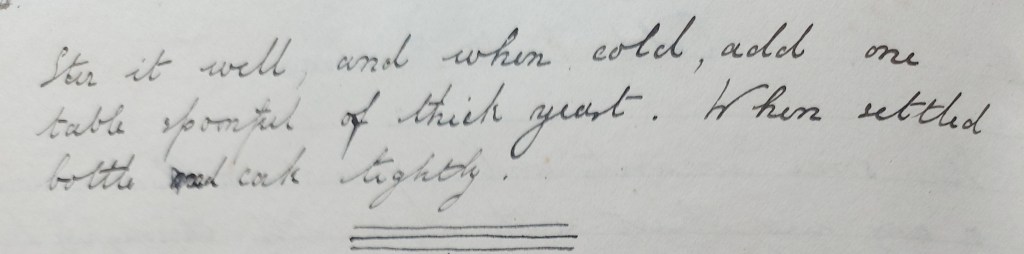 Stir it well, and when cold, add one
table spoonful of thick yeast. When settled
bottle and cork tightly.